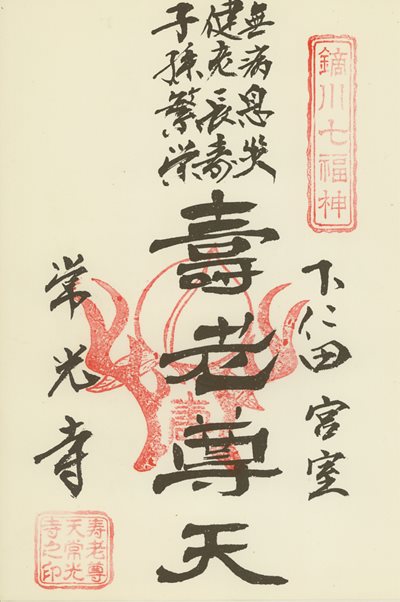 鏑川七福神
下仁田宮室
無病息災
健老長寿
子孫繁栄
壽老尊天
常光寺
寿老尊
天常光
寺之印